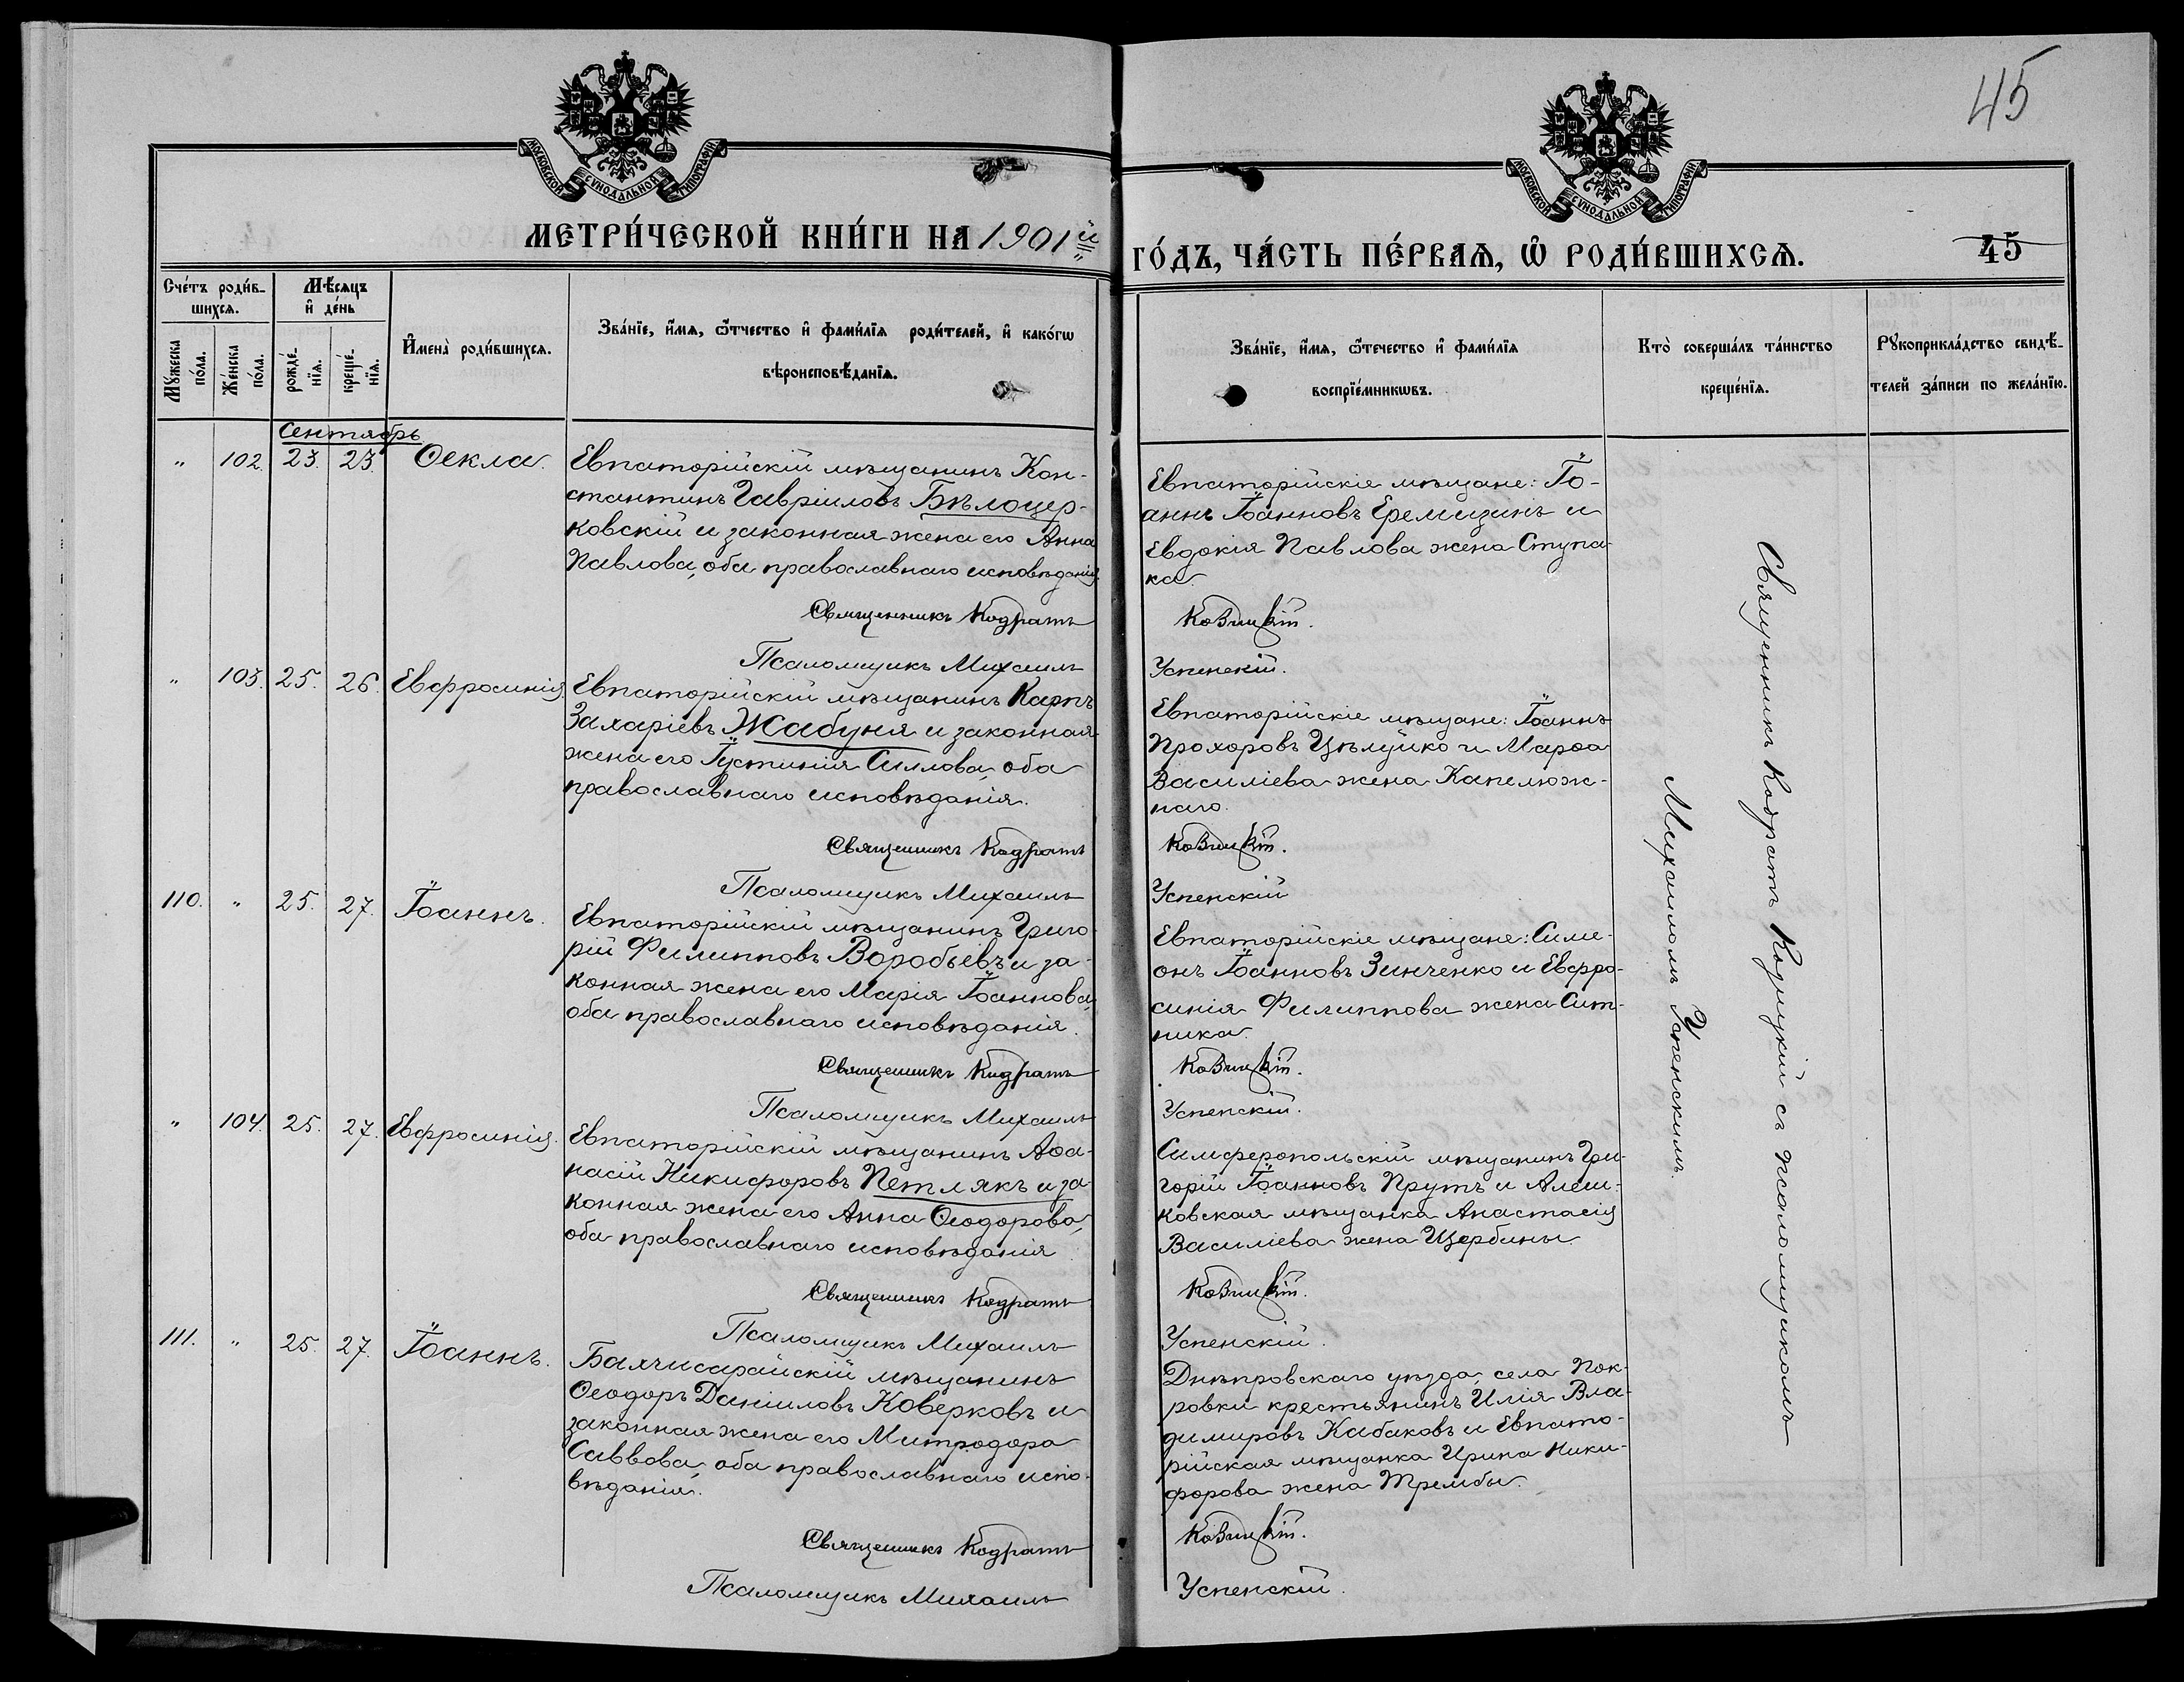 45
МОСКОВСКОЙ СУНОДАЛЬНОЙ ТИПОГРАФІИ
МОСКОВСКОЙ СУНОДАЛЬНОЙ ТИПОГРАФІИ
МЕТРИ́ЧЕСКОЙ КНИ́ГИ НА 1901й
ГО́ДЪ, ЧА́СТЬ ПЕ́РВАѦ, Ѡ РОДИ́ВШИХСѦ.
45
Сче́тъ роди́в-
шихсѧ.
Мѣ́сѧцъ
и҆ де́нь
Мꙋ́жеска
по́ла.
Же́нска
по́ла.
рожде́-
нїѧ.
креще́-
нїѧ.
И҆мена̀ роди́вшихсѧ.
Зва́нїе, и҆́мѧ, ѻ҆́тчество и҆ фами́лїѧ роди́телей, и҆ како́гѡ
вѣроисповѣ́данїѧ.
Зва́нїе, и҆́мѧ, ѻ҆́течество и҆ фами́лїѧ
воспрїе́мникѡвъ.
Кто̀ соверша́лъ та́инство
креще́нїѧ.
Рꙋкоприкла́дство свидѣ́-
телей за́писи по жела́нїю.
Сентябрь
„ 102. 23. 23. Ѳекла.
Евпаторійскій мѣщанинъ Кон-
стантинъ Гавріиловъ Бѣлоцер-
ковскій и законная жена его Анна
Павлова, оба православнаго исповѣданія.
Священникъ Кодратъ
Псаломщикъ Михаилъ
Евпаторійскіе мѣщане: Іо-
аннъ Іоанновъ Еремизинъ и
Евдокія Павлова жена Ступа-
ка.
Козицкій.
Успенскій.
„ 103. 25. 26. Евфросинія.
Евпаторійскій мѣщанинъ Карпъ
Захаріевъ Жабуня и законная
жена его Іустинія Силлова, оба
православнаго исповѣданія.
Священникъ Кодратъ
Псаломщикъ Михаилъ
Евпаторійскіе мѣщане: Іоаннъ
Прохоровъ Цѣлуйко и Марѳа
Василіева жена Капелюж-
наго.
Козицкій.
Успенскій
110. „ 25. 27. Іоаннъ.
Евпаторійскій мѣщанинъ Григо-
рій Филипповъ Воробьевъ и за-
конная жена его Марія Іоаннова,
оба православнаго исповѣданія.
Священникъ Кодратъ
Псаломщикъ Михаилъ
Евпаторійскіе мѣщане: Симе-
онъ Іоанновъ Зинченко и Евфро-
синія Филиппова жена Сит-
ника.
Козицкій.
Успенскій.
„ 104. 25. 27. Евфросинія.
Евпаторійскій мѣщанинъ Аѳа-
насій Никифоровъ Петлякъ и за-
конная жена его Анна Ѳеодорова,
оба православнаго исповѣданія
Священникъ Кодратъ
Псаломщикъ Михаилъ
Симферопольскій мѣщанинъ Гри-
горій Іоанновъ Прутъ и Алеш-
ковская мѣщанка Анастасія
Василіева жена Щербины
Козицкій.
Успенскій.
111. „ 25. 27. Іоаннъ.
Бахчисарайскій мѣщанинъ
Ѳеодоръ Даніиловъ Коверковъ и
законная жена его Митродора
Саввова, оба православнаго испо-
вѣданія.
Священникъ Кодратъ
Псаломщикъ Михаилъ
Днѣпровскаго уѣзда, села Пок-
ровки крестьянинъ Илія Вла-
димировъ Кабаковъ и Евпато-
рійская мѣщанка Ирина Ники-
форова жена Трембы.
Козицкій.
Успенскій.
Священникъ Кодратъ Козицкій съ псаломщикомъ
Михаиломъ Успенскимъ.